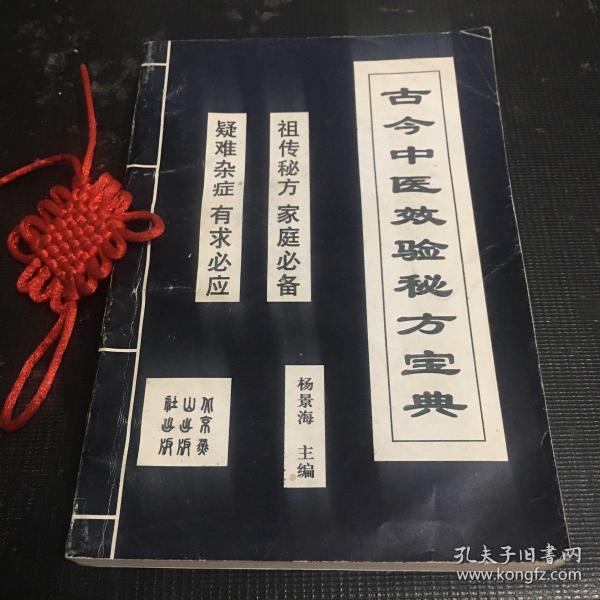 古今中医效验秘方宝典
祖传秘方 家庭必备
疑难杂症 有求必应
杨景海 主编
北京燕
山出版
社出版
孔夫子旧书网
www.kongfz.com